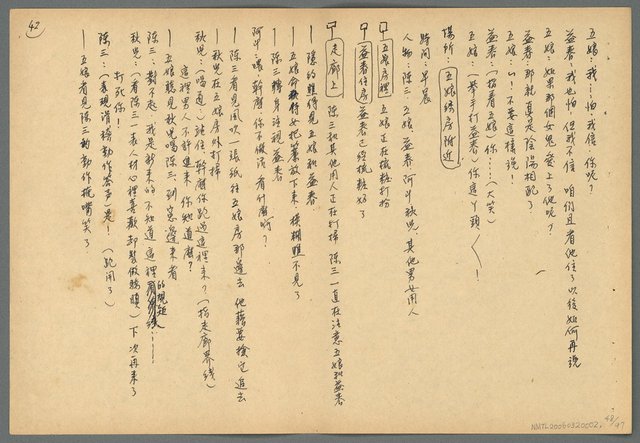 五娘：我…怕，你呢？
益春：我也怕，但我不信，咱們且看他住了以後如何再說
五娘：如果那個女鬼愛上了他呢？
益春：那就真是陰陽相配了
五娘：…！不要這樣說！
益春：（指着五娘）你…（大笑）
五娘：（举手打益春）你這丫頭
場所：五娘綉房附近
時間：早晨
人物：陳三、五娘、益春、阿牛、秋兒、其他男女用人
五娘房裡 五娘正在梳粧打扮
益春住房 益春已經梳粧好了
走廊上 陳三和其他用人正在打掃 陳三一直在注意五娘和益春
—隱約看得見五娘和益春
—五娘命女把簾放下來，模糊不見了
—陳三轉身注視益春
阿牛：喂，幹麼你不做活，看什麼啊？
—陳三看見風吹一張紙往五娘房那邊去，他藉要撿它追去
—秋兒在五娘房外打掃
秋兒：（喝道）站住，幹麼你跑過這裡來？（指走廊界线）
這裡男人不許進來，你知道麼？
—五娘聽見秋兒喝陳三，到窓邊來看
陳三：對不起，我是新來的，不知道這裡的規矩……
秋兒：（看陳三一表人材心裡喜歡却幫做驕頭）下次再來了
打死你！
陳三：（表現滑稽動作答声）是！（跑開了）
—五娘看見陳三的動作掩嘴笑了
42
48/47
NMTL20060320002